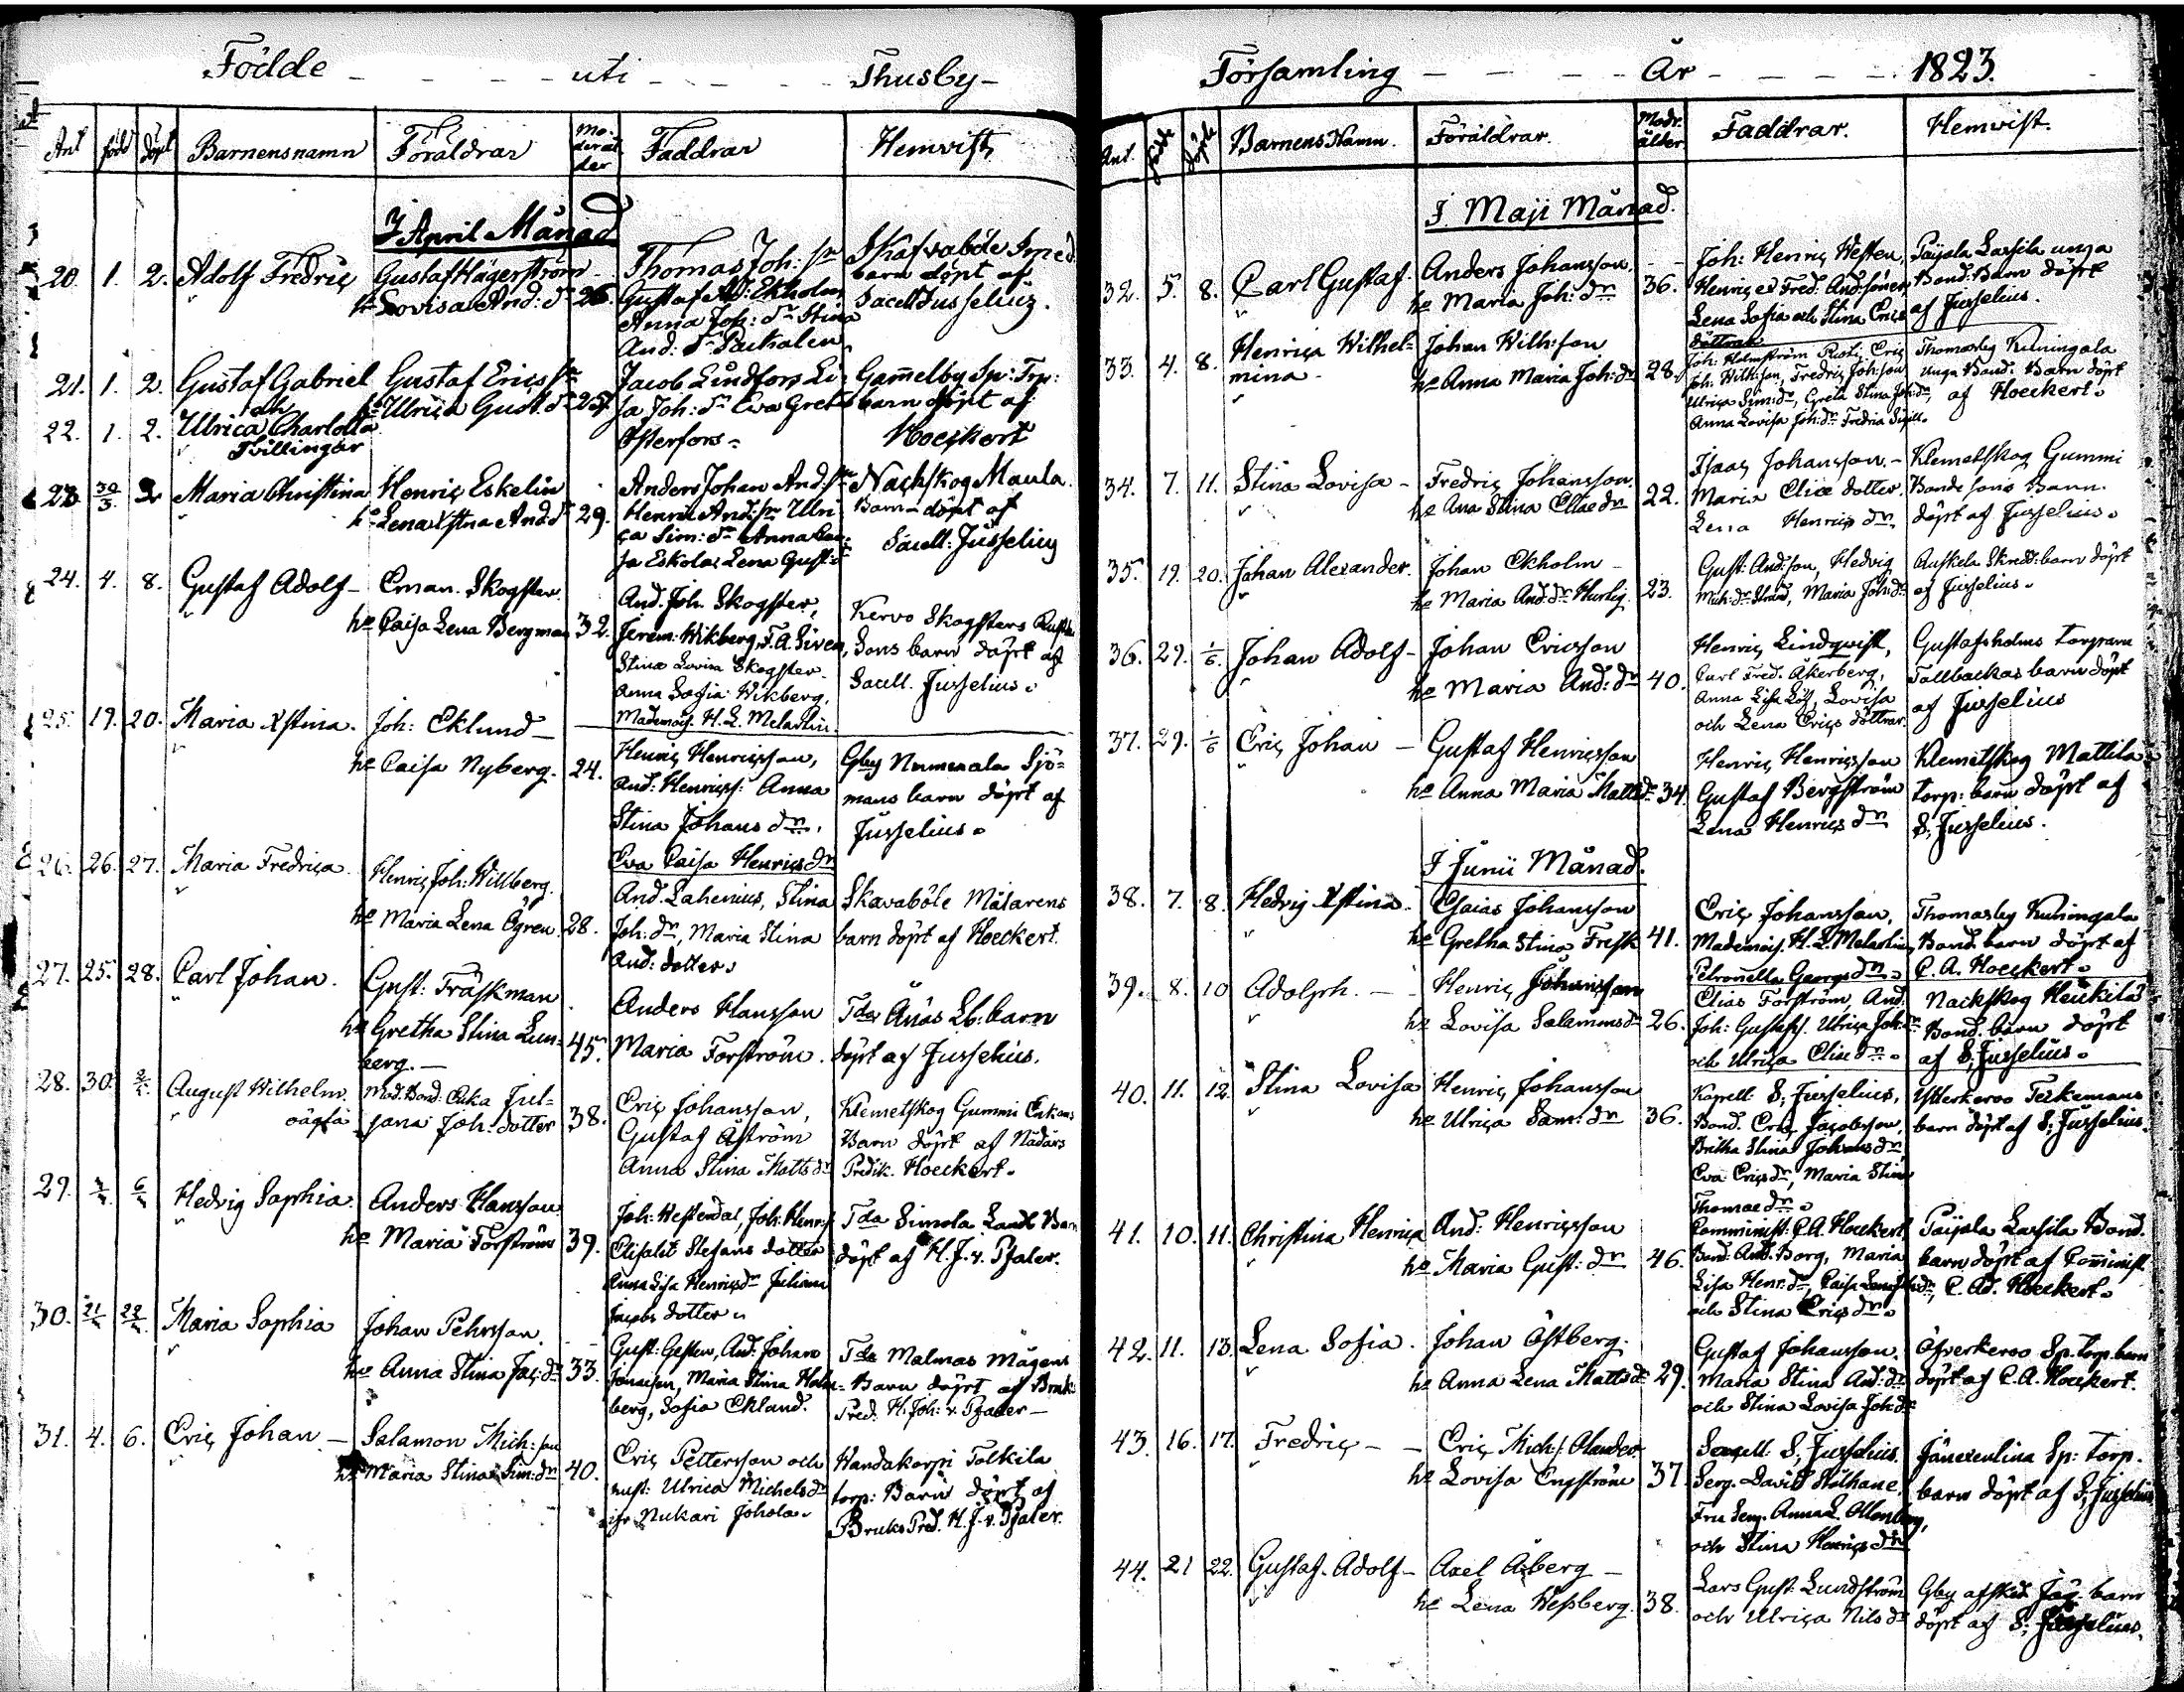 Födde - - - - uti - - - Thusby -
Ant född döpt Barnensnamn Föräldrar Moderålder Faddrar Hemvist
I April Månad
20. 1. 2. Adolf Fredric Gustaf Hägerström Thomas Joh: sn Skafvaböle Smed
ho Lovisa And: dr 26. Gustaf Ad: Ekholm barn döpt af
Anna Joh: dr Stina Sacell Jusselius.
And: dr
21. 1. 2. Gustaf Gabriel Gustaf Erics sn Jacob Lindfors Li- Gam̄elby Sp: Trp:
och ho Ulrica Gust. dr 25. sa Joh: dr Eva Greta barn döpt af
22. 1. 2. Ulrica Charlotta Österfors- Hoeckert
Tvillingar
23. 30/3 2. Maria Christina Henric Eskelin Anders Johan And. sn Nackskog Maula
ho Lena Xstina And: dr 29. Henric And: sn Ulri Barn - döpt af
ca Sim: dr Anna Cai- Sacell: Jusselius
sa Eskola Lena Gust: dr
24. 4. 8. Gustaf Adolf - Eman. Skogster And. Joh. Skogster, Kervo Skogsters
ho Caisa Lena Bergman 32. Jerem: Wikberg, F. A. Siven, Sons barn döpt af
Stina Lovisa Skogster. Sacell. Jusselius.
Anna Sofia Wikberg,
Mademois. H. L. Melartin.
25. 19. 20. Maria Xstina. Joh: Eklund - Henric Henricsson, Gby Nummenala Sjö-
ho Caisa Nyberg. 24. And: Henricss: Anna mans barn döpt af
Stina Johans dr. Jusselius.
Eva Caisa Henrics dr
26. 26. 27. Maria Fredrica Henric Joh: Willberg. And. Lahenius, Stina Skavaböle Målarens
ho Maria Lena Ögren. 28. Joh: dr, Maria Stina barn döpt af Hoeckert.
And: dotter.
27. 25. 28. Carl Johan. Gust: Träskman Anders Hansson Tda Ånäs Lb: barn
ho Gretha Stina Lun- 45. Maria Forström. döpt af Jusselius.
berg. -
28. 30. August Wilhelm. Mad. Bond: Enka Jul- Eric Johansson, Klemetskog Gummi Enkans
oägta jana Joh: dotter 38. Gustaf Åström Barn döpt af Nådårs
Anna Stina Matts dr Predik. Hoeckert.
29. Hedvig Sophia. Anders Hansson Joh: Westerdal, Joh: Henr: s Tda Simola Landb Barn
ho Maria Forström 39. Elisabt Stefans dotter döpt af H. J. v. Pfaler.
Anna Lisa Henrics dr Juliana
Jacobs dotter.
30. Maria Sophia Johan Pehrsson. Gust: Gesten, And: Johan Tda Malmas Mågens
ho Anna Stina Jac: dr 33. Jönasson, Maria Stina Holm- Barn döpt af Bruks
berg, Sofia Eklund. Pred. H. Joh: v. Pfaler -
31. 4. 6. Eric Johan - Salamon Mich: son Eric Pettersson och Handakorpi Tolkila
ho Maria Stina Sim: dr 40. hust: Ulrica Michels dr torp: Barn döpt af
ifr Nukari Johola. Bruks Pred. H. J. v. Pfaler.
Församling - - - - År - - - 1823.
Ant. födde döpte Barnens Namn. Föräldrar. Modr. ålder Faddrar. Hemvist.
I Maji Månad.
32. 5. 8. Carl Gustaf. Anders Johansson. Joh: Henric Westen, Paijala Lassila unga
ho Maria Joh: dr 36. Henric et Fred. And. söner, Bond: Barn döpt
Lena Sofia och Stina Erics af Jusselius.
döttrar
33. 4. 8. Henrica Wilhel- Johan Wilh: son Joh: Holmström Eric Thomasby Kuningala
mina. ho Anna Maria Joh: dr 28. Joh: Wilh: son, Fredric Joh: son unga Bond. Barn döpt
Ulrica Sim: dr, Greta Stina Joh: dr, af Hoeckert.
Anna Lovisa Joh: dr
34. 7. 11. Stina Lovisa - Fredric Johansson. Isaac Johansson. - Klemetskog Gummi
ho Ana Stina Eliæ dr 22. Maria Eliæ dotter. Bonde sons Barn.
Lena Henrics dr. döpt af Jusselius.
35. 19. 20. Johan Alexander. Johan Ekholm - Gust: And: son, Hedvig Ruskela Skredd: barn döpt
ho Maria And: dr Hurtig. 23. Mich: dr Strand, Maria Joh: dr af Jusselius.
36. 29. 1/6 Johan Adolf - Johan Ericsson Henric Lindqvist, Gustafsholms torparn
ho Maria And: dr 40. Carl Fred. Åkerberg, Tallbackas barn döpt
Anna Lisa Löf, Lovisa af Jusselius
och Lena Erics döttrar.
37. 29. 1/6 Eric Johan - Gustaf Henricsson Henric Henricsson Klemetskog Mattila
ho Anna Maria Matts dr 34. Gustaf Bergström torp: barn döpt af
Lena Henrics dr S. Jusselius.
I Junii Månad.
38. 7. 8. Hedvig Xstina. Esaias Johansson Eric Johansson, Thomasby Kuningala
ho Gretha Stina Frisk 41. Mademois. H. L. Melartin, Bond. barn döpt af
Petronella Georgs dr. C. A. Hoeckert.
39. 8. 10 Adolph. - Henric Johansson Elias Forström, And. Nackskog Heickilä
ho Lovisa Salamons dr 26. Joh: Gustafss. Ulrica Joh: dr Bond. barn döpt
och Ulrica Eliæ dr. af S. Jusselius.
40. 11. 12. Stina Lovisa Henric Johansson Kapell: S. Jusselius, Ytterkervo Teckemans
ho Ulrica Sam: dr 36. Bond. Eric Jacobsson, barn döpt af S. Jusselius.
Britha Stina Johans dr,
Eva Erics dr, Maria Stina
Thomæ dr.
41. 10. 11. Christina Henrica And: Henricsson Comminist: C. A. Hoeckert, Paijala Lassila Bond.
ho Maria Gust: dr 46. Bond: And. Borg, Maria barn döpt af Com̄inist.
Lisa Henr: dr, Caisa Lena dr, C. Ad. Hoeckert.
och Stina Erics dr.
42. 11. 13. Lena Sofia. Johan Östberg. Gustaf Johansson. Öfverkervo Sp. torp. barn
ho Anna Lena Matts dr 29. Maria Stina And: dr döpt af C. A. Hoeckert.
och Stina Lovisa Joh: dr
43. 16. 17. Fredric - - Eric Mich: s. Olander. Sacell: S. Jusselius. Jänexenlina Sp: torp.
ho Lovisa Engström 37. Serg. David Stålhane, barn döpt af S. Jusselius
Fru Serg. Anna L.
och Stina Henrics dr
44. 21 22. Gustaf Adolf - Axel Åberg - Lars Gust: Lundström Gby afsked Jäg. barn
ho Lena Wessberg. 38. och Ulrica Nils dr döpt af S. Jusselius.